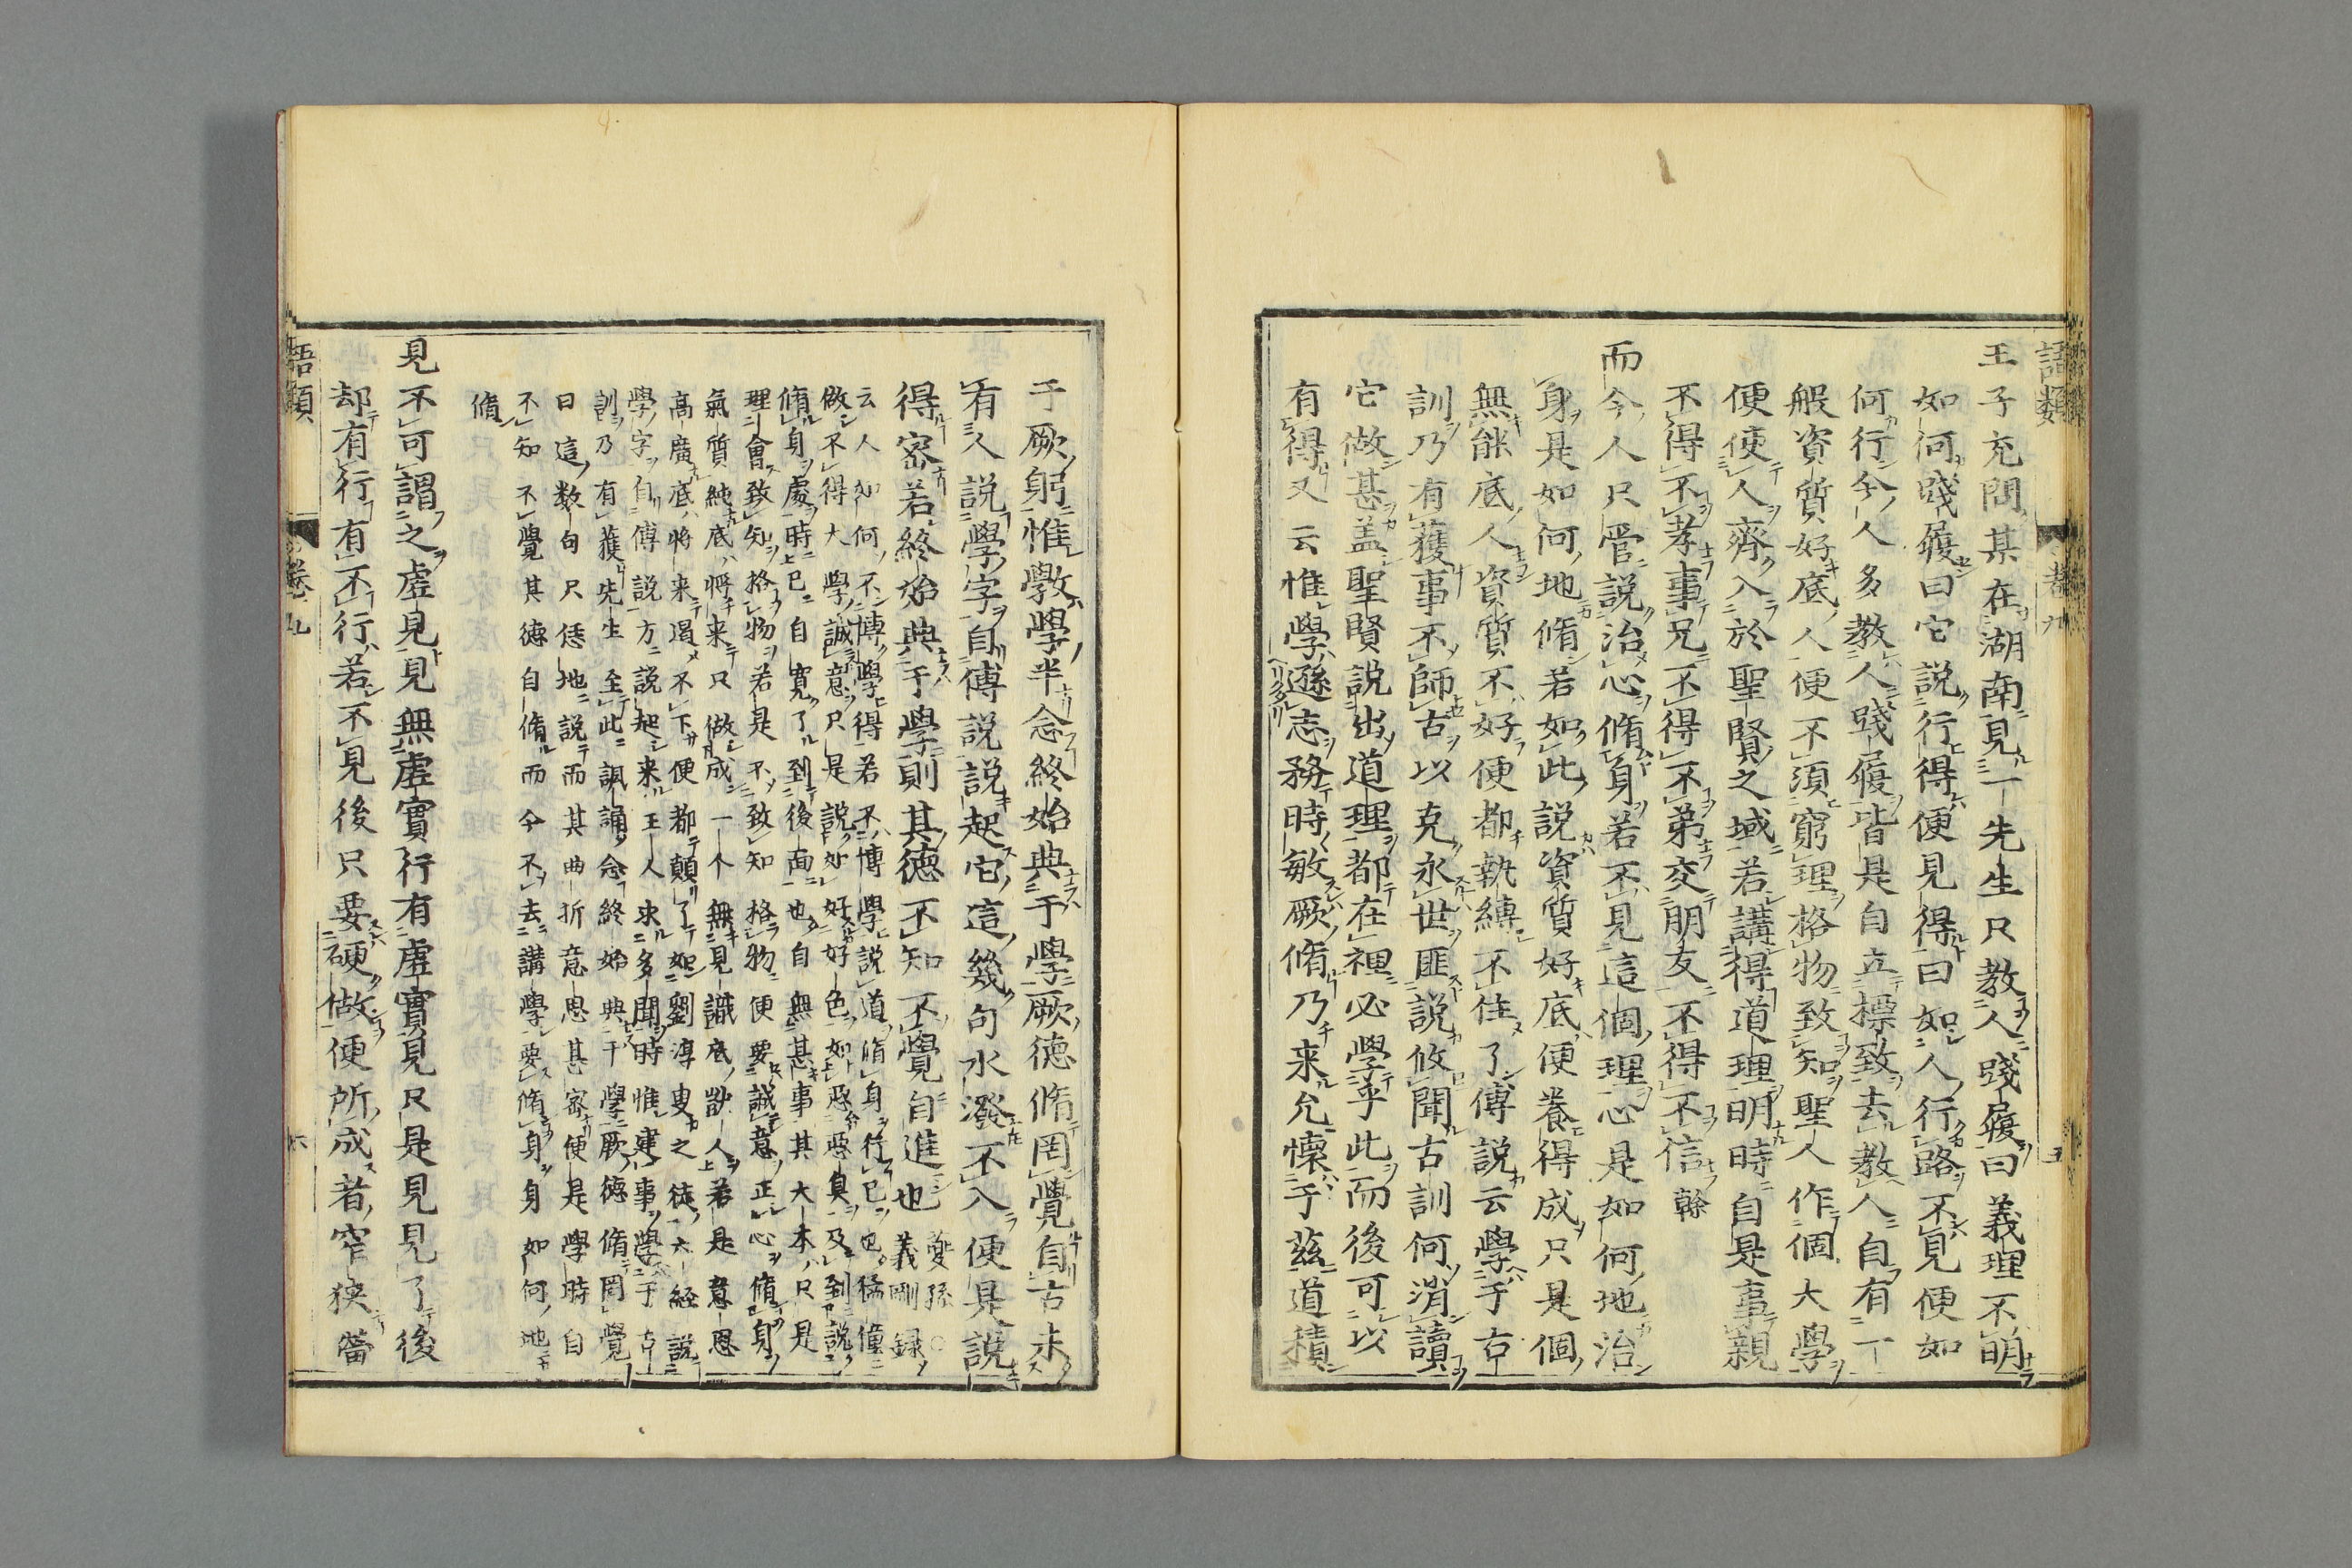 語類
卷九
五
王子充問某在湖南見一先生只教人踐履曰義理不明
如何踐履曰它說行得便見得曰如人行路不見便如
何行今人多教人踐履皆是自立標致去教人自有一
般資質好底人便不須窮理格物致知聖人作個大學
便使人齊入於聖賢之域若講得道理明時自是事親
不得不孝事兄不得不弟交朋友不得不信 榦
而今人只管說治心脩身若不見這個理心是如何地治
身是如何地脩若如此說資質好底便養得成只是個
無能底人資質不好便都執縛不住了傅說云學于古
訓乃有獲事不師古以克永世匪說攸聞古訓何消讀
它做甚盖聖賢說出道理都在裡必學乎此而後可以
有得又云惟學遜志務時敏厥脩乃来允懷于茲道積
于厥躬惟斆學半念終始典于學厥德脩罔覺自古未
有人說學字自傅說說起它這幾句水潑不入便是說
得密若終始典于學則其德不知不覺自進也 夔孫○義剛録
云人如何不博學得若不博學說道脩身行已也猛僮
做不得大學誠意只是說如好好色如惡惡臭及到說
脩身處時已自寬了到後面也自無甚事其大本只是
理會致知格物若是不致知格物便要誠意正心脩身
氣質純底將来只做成一个無見識底獃人若是意思
高廣底將来遏不下便都顛了如劉淳叟之徒六經說
學字自傅說方說起来王人求多聞時惟建事學于古
訓乃有獲先生至此諷誦念終始典于學厥德脩罔覺
曰這数句只恁地說而其曲折意思甚密便是學時自
不知不覺其德自脩而今不去講學要脩身身如何地
脩
見不可謂之虛見見無虛實行有虛實見只是見見了後
却有行有不行若不見後只要硬做便所成者窄狹 㽦
語類
卷九
六